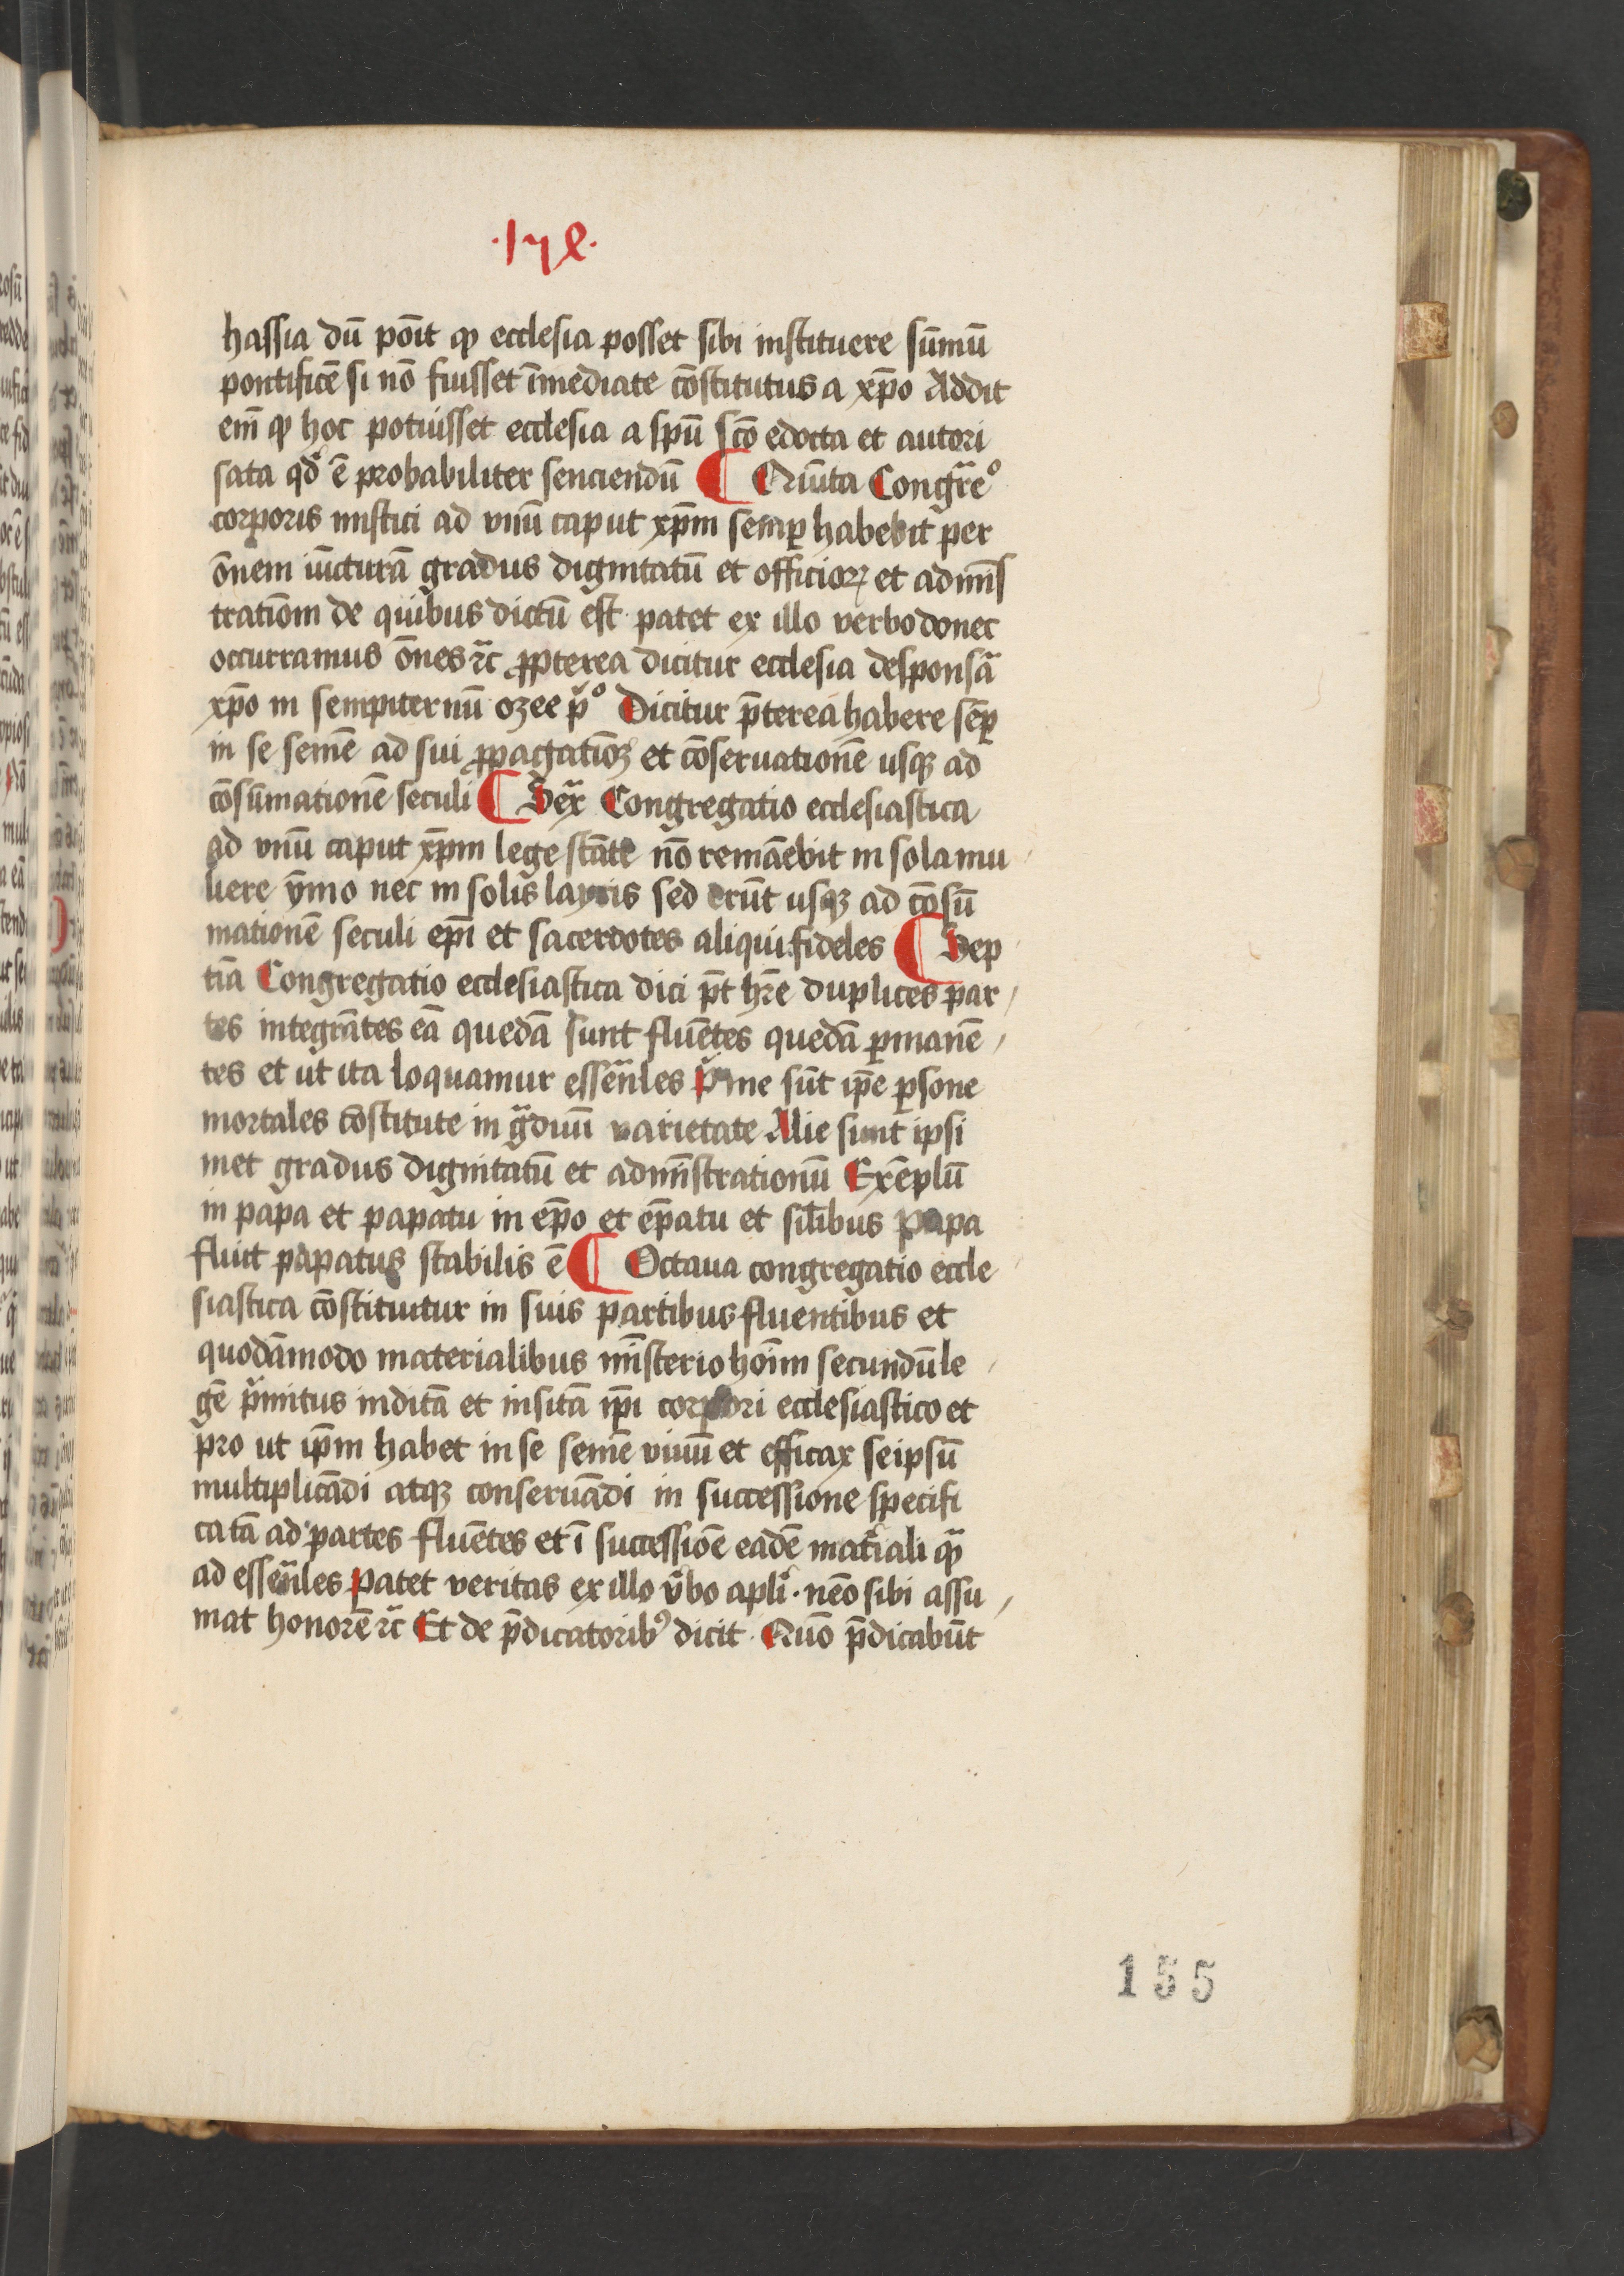 ·lyl·
hassia dū pōit ꝙ ecclesia posset sibi instituere sūmū
pontificē si nō fuisset īmediate cōstitutus a xp̄o Addit
em̄ ꝙ hoc potuisset ecclesia a spū scō edocta et autori
sata qđ ē probabiliter senciendū ¶ Quīta Congrēº
corporis mistici ad vnū caput xp̄m semꝑ habebit per
ōnem iūcturā gradus dignitatū et officioꝝ et admīs
tratiōm de quibus dictū est patet ex illo verbo donec
occurramus ōnes ⁊c̄ ꝓpterea dicitur ecclesia desponsā
xp̄o in sempiternū ozee p̄º Dicitur p̄terea habere sēꝑ
in se semē ad sui ꝓpagatiōꝫ et cōseruationē usqꝫ ad
cōsūmationē seculi ¶ Sex̄ Congregatio ecclesiastica
ad vnū caput xp̄m lege stāte nō remāebit in sola mu
liere ȳmo nec in solis laycis sed erūt usqꝫ ad cōsū
mationē seculi ep̄i et sacerdotes aliqui fideles ¶ Sep
tīa Congregatio ecclesiastica dici p̄t hr̄e duplices par
tes integrātes eā quedā sunt fluētes quedā ꝑmanē
tes et ut ita loquamur essen̄les P̄me sūt ip̄e ꝑsone
mortales cōstitute in gr̄duū varietate Alie sunt ipsi
met gradus dignitatū et admīstrationū Exēplū
in papa et papatu in ep̄o et ep̄atu et sīlibus Papa
fluit papatus stabilis ē ¶ Octaua congregatio eccle
siastica cōstituitur in suis partibus fluentibus et
quodāmodo materialibus mīsterio hoīm secundū le
gē p̄mitus inditā et insitā ip̄i corpori ecclesiastico et
pro ut ip̄m habet in se semē viuū et efficax seipsū
multiplicādi atqꝫ conseruādi in successione specifi
catā ad partes fluētes et ī successiōe eadē mat̄iali qꝫ
ad essen̄les Patet veritas ex illo v̄bo apl̄i · nēo sibi assu
mat honorē ⁊c̄ Et de p̄dicatoribꝰ dicit · Quō p̄dicabūt
155